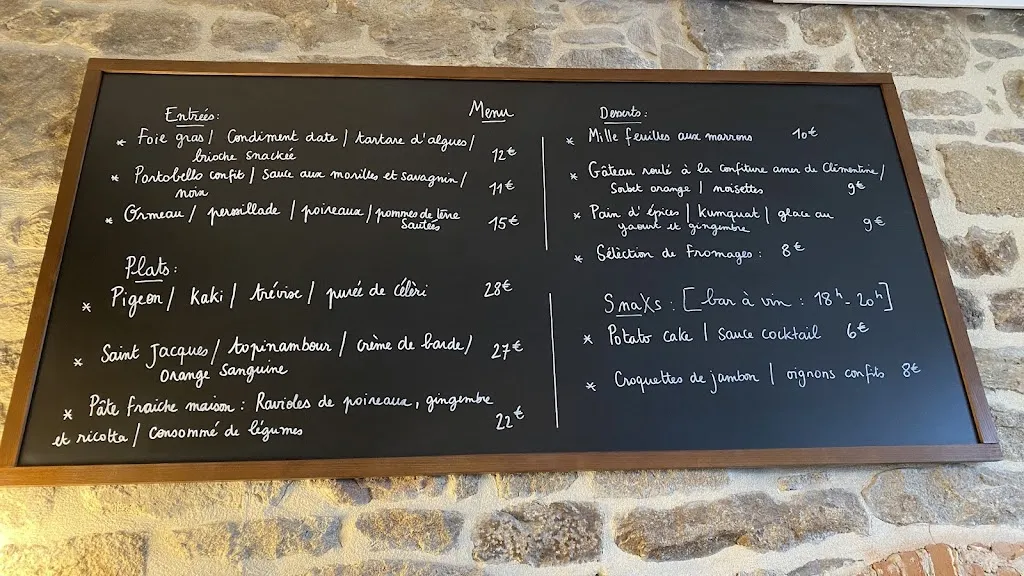 Menu
Entrées:
* Foie gras / Condiment date / tartare d'algues /
brioche snackée 12€
* Portobello confit / sauce aux morilles et savagnin /
noix 11€
* Ormeau / persillade / poireaux / pommes de terre
sautées 15€
Plats:
* Pigeon / Kaki / trévise / purée de céleri 28€
* Saint Jacques / topinambour / crème de barde / 27€
orange sanguine
* Pâte fraiche maison : Ravioles de poireaux, gingembre
et ricotta / consommé de légumes 22€
Desserts:
* Mille feuilles aux marrons 10€
* Gâteau roulé à la confiture amer de Clémentine /
Sorbet orange / noisettes 9€
* Pain d'épices / kumquat / glace au
yaourt et gingembre 9€
* Sélèction de Fromages : 8€
SnaXs : [bar à vin : 18h - 20h]
* Potato cake / sauce cocktail 6€
* Croquettes de jambon / oignons confits 8€